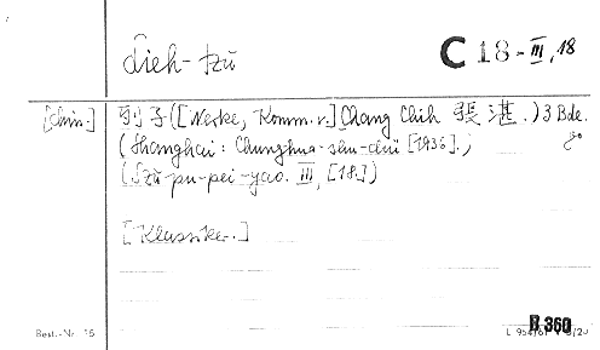 Lieh-tzŭ C 18-III,18
[chin.] 列子([Werke, Komm. v.] Chang Chih 張湛.) 3 Bde.
(Shanghai: Chunghua-shu-chü [1936].) 8°
(Szŭ-pu-pei-yao. III, [18.])
[Klassiker.]
Best.-Nr. 15 B 360